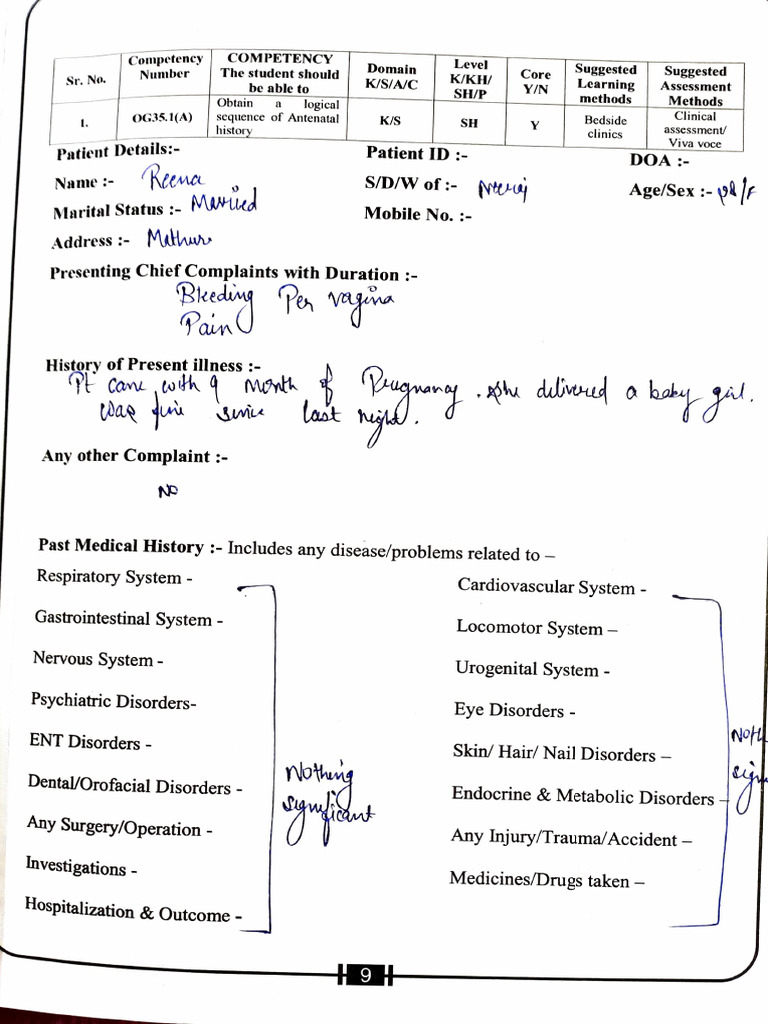 Sr. No. Competency Number COMPETENCY The student should be able to Domain K/S/A/C Level K/KH/ SH/P Core Y/N Suggested Learning methods Suggested Assessment Methods
1. OG35.1(A) Obtain a logical sequence of Antenatal history K/S SH Y Bedside clinics Clinical assessment/ Viva voce
Patient Details:- Patient ID :- DOA :-
Name :- Reena S/D/W of :- Neeraj Age/Sex :-
Marital Status :- Married Mobile No. :-
Address :- Mathura
Presenting Chief Complaints with Duration :-
Bleeding Per vagina
Pain
History of Present illness :-
Pt came with 9 month of Preugnancy . she delivered a baby girl.
was fine last night.
Any other Complaint :-
NO
Past Medical History :- Includes any disease/problems related to –
Respiratory System - Cardiovascular System -
Gastrointestinal System - Locomotor System –
Nervous System - Urogenital System -
Psychiatric Disorders- Eye Disorders -
ENT Disorders - Skin/ Hair/ Nail Disorders –
Dental/Orofacial Disorders - Endocrine & Metabolic Disorders –
Any Surgery/Operation - Any Injury/Trauma/Accident –
Investigations - Medicines/Drugs taken –
Hospitalization & Outcome -
Nothing
significant
9